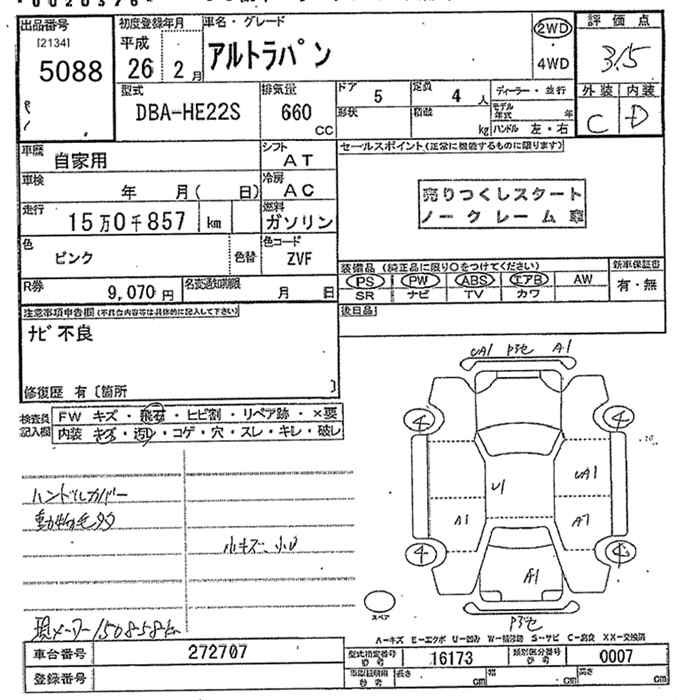 出品番号 [2134] 5088
初度登録年月 平成 26 2月
車名・グレード アルトラパン
2WD ・ 4WD
評価点 3.5
外装 内装
C D
型式 DBA-HE22S
排気量 660 CC
ドア 5 定員 4 人
形状 積載 kg
ディーラー・並行
モデル年式 年
ハンドル 左・右
車歴 自家用
シフト AT
車検 年 月( 日)
冷房 AC
走行 15万0千857 km
燃料 ガソリン
色 ピンク 色替
色コード ZVF
R券 9,070円
名変通知期限 月 日
セールスポイント(正常に機能するものに限ります)
売りつくしスタート
ノークレーム車
装備品(純正品に限り○をつけてください)
PS PW ABS エアB AW
SR ナビ TV カワ
新車保証書 有・無
後日品
注意事項申告欄(不具合内容等は具体的に記入して下さい)
ナビ不良
修復歴 有〔箇所 〕
検査員記入欄
FW キズ・飛石・ヒビ割・リペア跡・×要
内装 キズ・汚れ・コゲ・穴・スレ・キレ・破レ
ハンドルカバー
動物毛
小キズ、小U
現メーター150858km
UA1 A1
4 4
U1 UA1
A1 A1
4 4
A1
スペア
A-キズ E-エクボ U-凹み W-補修跡 S-サビ C-腐食 XX-交換済
車台番号 272707
登録番号
型式指定番号 参考 16173
類別区分番号 参考 0007
長さ cm 幅 cm 高さ cm